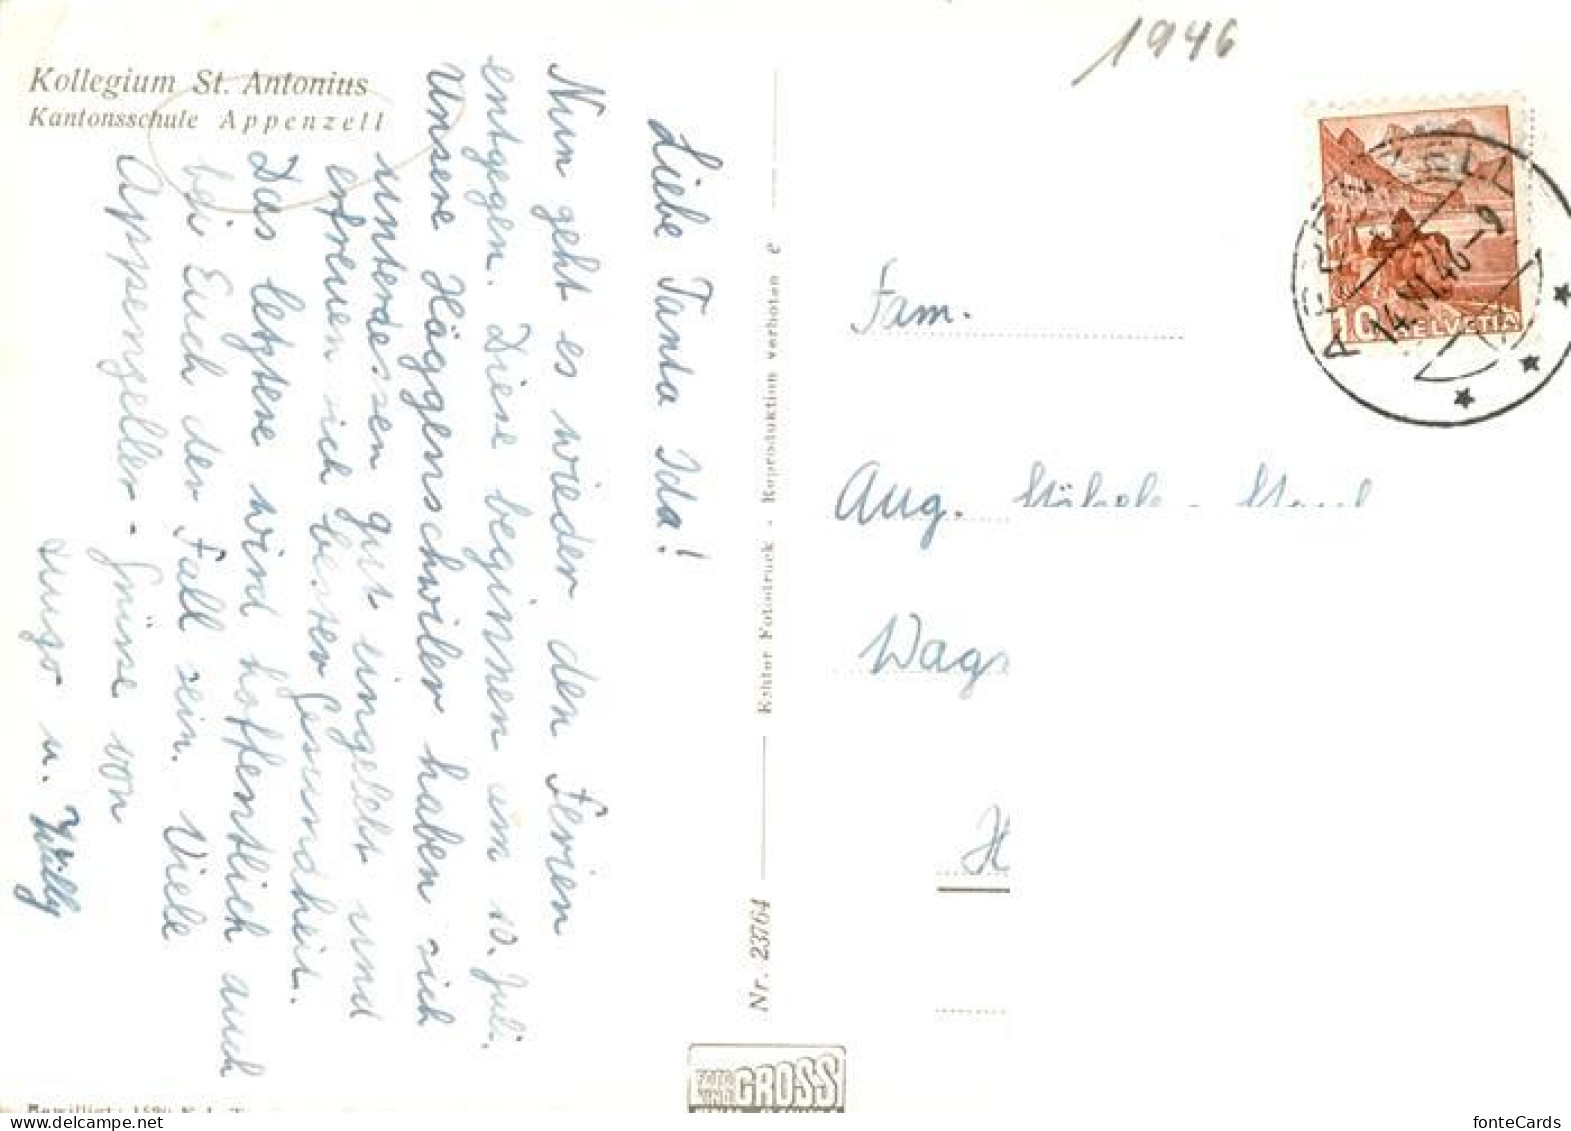 Kollegium St. Antonius
Kantonsschule Appenzell
Liebe Tanta Ida!
Nun geht es wieder den Ferien
entgegen. Diese beginnen am 10. Juli.
Unsere Häggenschwiler haben sich
unterdessen gut eingelebt und
erfreuen sich bester Gesundheit.
Das letztere wird hoffentlich auch
bei Euch der Fall sein. Viele
Appenzeller-Grüsse von
Hugo u. Willy
Echter Fotodruck - Reproduktion verboten e
Nr. 23764
FOTO
GROSS
1946
APPENZELL
14.VI.46-9
10 HELVETIA
Fam.
Aug.
Wag
H
fonteCards